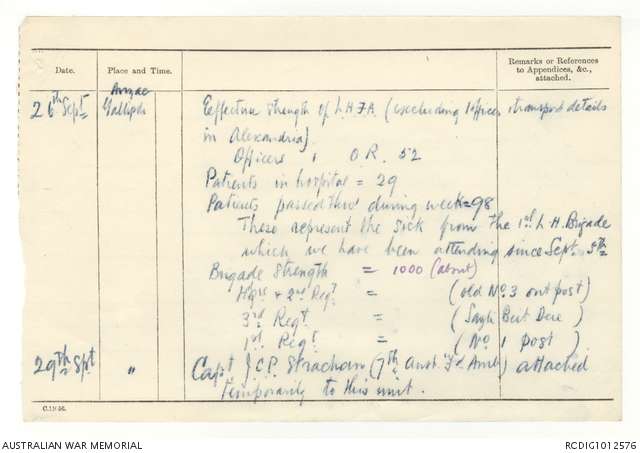 Date.
Place and Time.
Remarks or References
to Appendices, &c.,
attached.
Anzac
26th Sept Gallipoli Effective strength of L.H.F.A. (excluding 1 officer & transport details
in Alexandria)
Officers O.R. 52
Patients in hospital = 29
Patients passed thro' during week = 98
These represent the sick from the 1st L.H. Brigade
which we have been attending since Sept. 5th
Brigade Strength = 1000 (about)
Hqrs + 2nd Regt = (old No. 3 out post)
3rd Regt = (Sazli Beit Dere)
1st Regt = (No. 1 post)
29th Sept " Capt J.C.P. Strachan (7th Aust. Fd. Amb) attached
temporarily to this unit.
C.1936.
AUSTRALIAN WAR MEMORIAL
RCDIG1012576